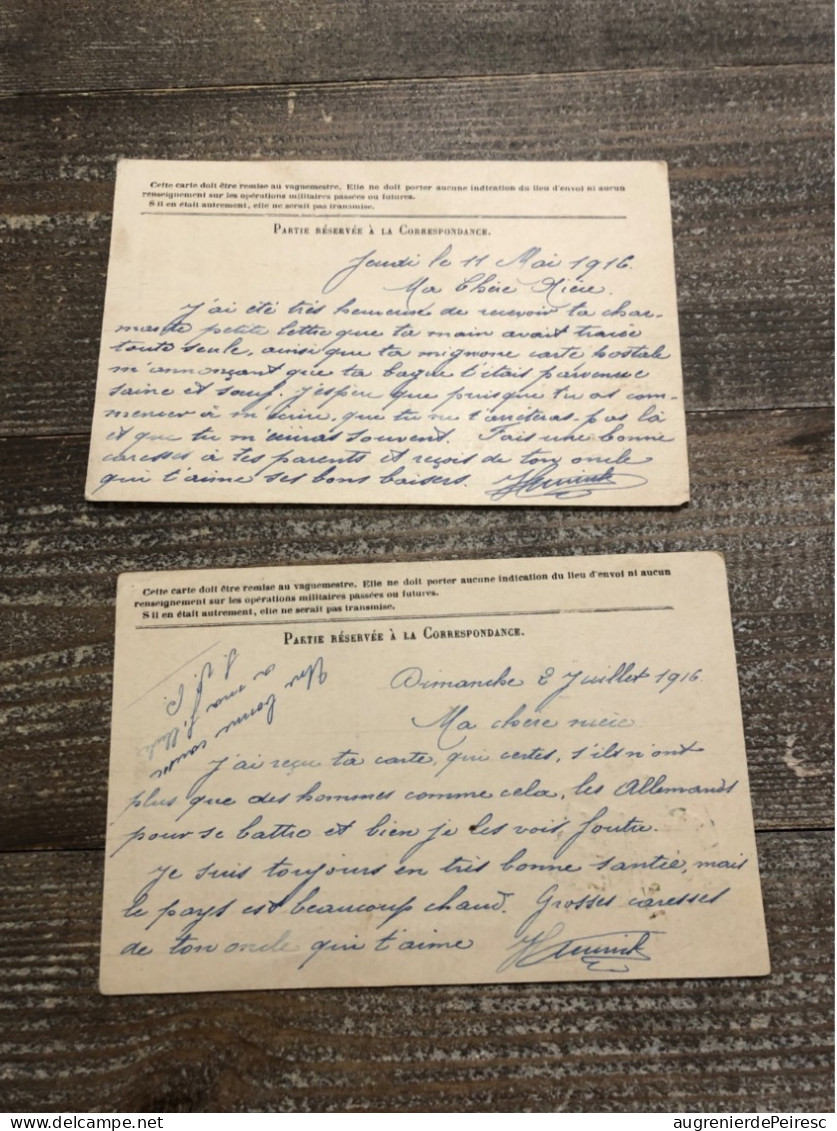 Cette carte doit être remise au vaguemestre. Elle ne doit porter aucune indication du lieu d'envoi ni aucun
renseignement sur les opérations militaires passées ou futures.
S il en était autrement, elle ne serait pas transmise.
PARTIE RÉSERVÉE À LA CORRESPONDANCE.
Jeudi le 11 Mai 1916.
Ma Chère Nièce.
J'ai été très heureuse de recevoir ta char-
mante petite lettre que ta main avait tracée
toute seule, ainsi que ta mignone carte postale
m'annonçant que ta bague t'était parvenue
saine et sauf. J'espère que puisque tu as com-
mencer à m'écrire, que tu ne t'arrêteras pas là
et que tu m'écriras souvent. Fais une bonne
caresses à tes parents et reçois de ton oncle
qui t'aime ses bons baisers.
Cette carte doit être remise au vaguemestre. Elle ne doit porter aucune indication du lieu d'envoi ni aucun
renseignement sur les opérations militaires passées ou futures.
S il en était autrement, elle ne serait pas transmise.
PARTIE RÉSERVÉE À LA CORRESPONDANCE.
Une bonne
a ma
Dimanche 2 Juillet 1916.
Ma chère nièce.
J'ai reçu ta carte, qui certes, s'ils n'ont
plus que des hommes comme cela, les Allemands
pour se battre et bien je les vois foutre.
Je suis toujours en très bonne santée, mais
le pays est beaucoup chaud. Grosses caresses
de ton oncle qui t'aime
augrenierdePeiresc